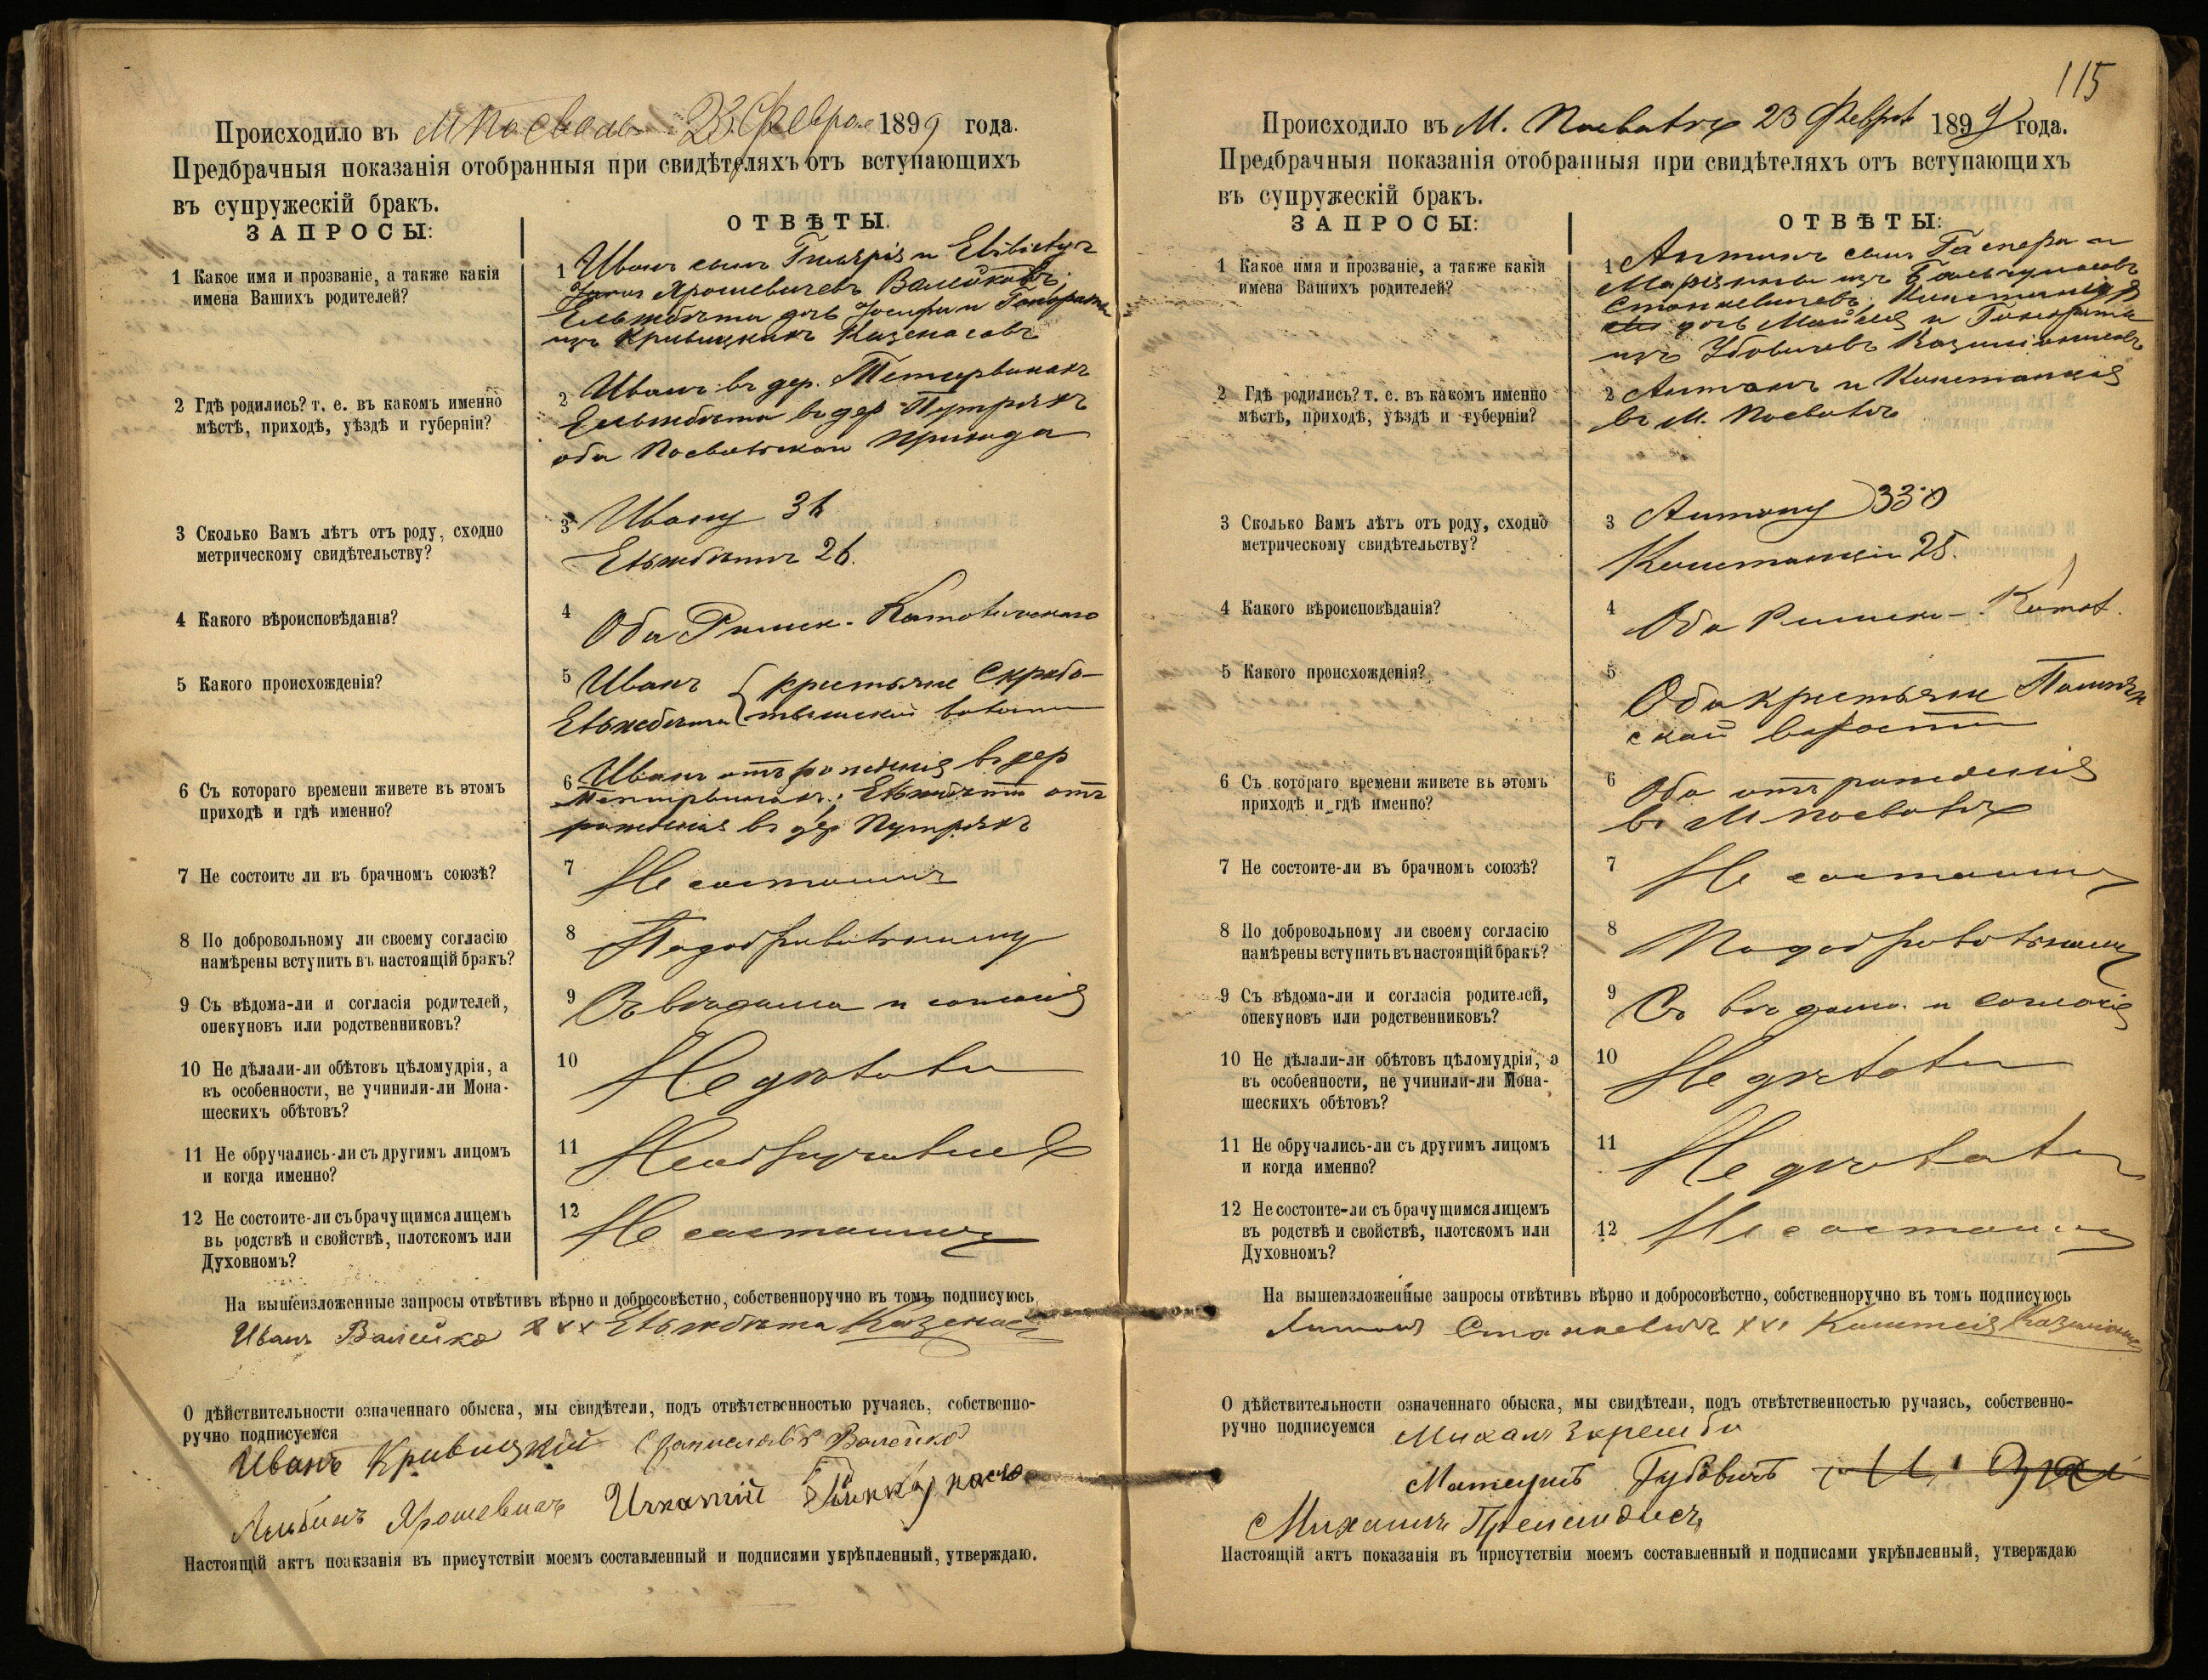 Происходило въ М Посволь 23 Февраля 1899 года.
Предбрачныя показанія отобранныя при свидѣтеляхъ отъ вступающихъ
въ супружескій бракъ.
ЗАПРОСЫ:
ОТВѢТЫ.
1 Какое имя и прозваніе, а также какія
имена Вашихъ родителей?
1 Иванъ сынъ
Ярошевичевъ Валейковъ.
Ельжбѣта дочь Іосифа и
изъ Кривицкихъ
2 Гдѣ родились? т. е. въ какомъ именно
мѣстѣ, приходѣ, уѣздѣ и губерніи?
2 Иванъ въ дер.
Ельжбѣта въ дер
оба Посвольскаго прихода
3 Сколько Вамъ лѣтъ отъ роду, сходно
метрическому свидѣтельству?
3 Ивану
Ельжбѣтѣ 26.
4 Какого вѣроисповѣданія?
4 Оба Римск. Католическаго
5 Какого происхожденія?
5 Иванъ крестьяне Скрабо-
Ельжбѣта тѣльской волости
6 Съ котораго времени живете въ этомъ
приходѣ и гдѣ именно?
6 Иванъ отъ рожденія въ дер
Ельжбѣта отъ
рожденія въ дер
7 Не состоите ли въ брачномъ союзѣ?
7 Не состоимъ
8 По добровольному ли своему согласію
намѣрены вступить въ настоящій бракъ?
8 По добровольному
9 Съ вѣдома-ли и согласія родителей,
опекуновъ или родственниковъ?
9 Съ вѣдома и согласія
10 Не дѣлали-ли обѣтовъ цѣломудрія, а
въ особенности, не учинили-ли Мона-
шескихъ обѣтовъ?
10 Не дѣлали
11 Не обручались-ли съ другимъ лицомъ
и когда именно?
11 Не обручались
12 Не состоите-ли съ брачущимся лицемъ
въ родствѣ и свойствѣ, плотскомъ или
Духовномъ?
12 Не состоимъ
На вышеизложенные запросы отвѣтивъ вѣрно и добросовѣстно, собственноручно въ томъ подписуюсь
Иванъ Валейко ххх Ельжбѣта
О дѣйствительности означеннаго обыска, мы свидѣтели, подъ отвѣтственностью ручаясь, собственно-
ручно подписуемся
Иванъ Кривицкій Станиславъ Валейко
Альбинъ Ярошевичъ Игнатій
Настоящій актъ поакзанія въ присутствіи моемъ составленный и подписями укрѣпленный, утверждаю.
115
Происходило въ М. Посволѣ 23 Февр 1899 года.
Предбрачныя показанія отобранныя при свидѣтеляхъ отъ вступающихъ
въ супружескій бракъ.
ЗАПРОСЫ:
ОТВѢТЫ:
1 Какое имя и прозваніе, а также какія
имена Вашихъ родителей?
1 Антонъ сынъ Гаспера и
Маріанны изъ
Станкевичевъ. Констанція
дочь и
изъ
2 Гдѣ родились? т. е. въ какомъ именно
мѣстѣ, приходѣ, уѣздѣ и губерніи?
2 Антонъ и Констанція
въ М. Посволѣ
3 Сколько Вамъ лѣтъ отъ роду, сходно
метрическому свидѣтельству?
3 Антону 33
Констанціи 25.
4 Какого вѣроисповѣданія?
4 Оба Римско-Катол.
5 Какого происхожденія?
5 Оба крестьяне
ской волости
6 Съ котораго времени живете въ этомъ
приходѣ и гдѣ именно?
6 Оба отъ рожденія
въ М Посволѣ
7 Не состоите-ли въ брачномъ союзѣ?
7 Не состоимъ
8 По добровольному ли своему согласію
намѣрены вступить въ настоящій бракъ?
8 По добровольному
9 Съ вѣдома-ли и согласія родителей,
опекуновъ или родственниковъ?
9 Съ вѣдома и согласія
10 Не дѣлали-ли обѣтовъ цѣломудрія, а
въ особенности, не учинили-ли Мона-
шескихъ обѣтовъ?
10 Не дѣлали
11 Не обручались-ли съ другимъ лицомъ
и когда именно?
11 Не дѣлали
12 Не состоите-ли съ брачущимся лицемъ
въ родствѣ и свойствѣ, плотскомъ или
Духовномъ?
12 Не состоимъ
На вышеизложенные запросы отвѣтивъ вѣрно и добросовѣстно, собственноручно въ томъ подписуюсь
Антонъ Станкевичъ ххх
О дѣйствительности означеннаго обыска, мы свидѣтели, подъ отвѣтственностью ручаясь, собственно-
ручно подписуемся
Матеушъ Губовичъ
Михаилъ
Настоящій актъ показанія въ присутствіи моемъ составленный и подписями укрѣпленный, утверждаю